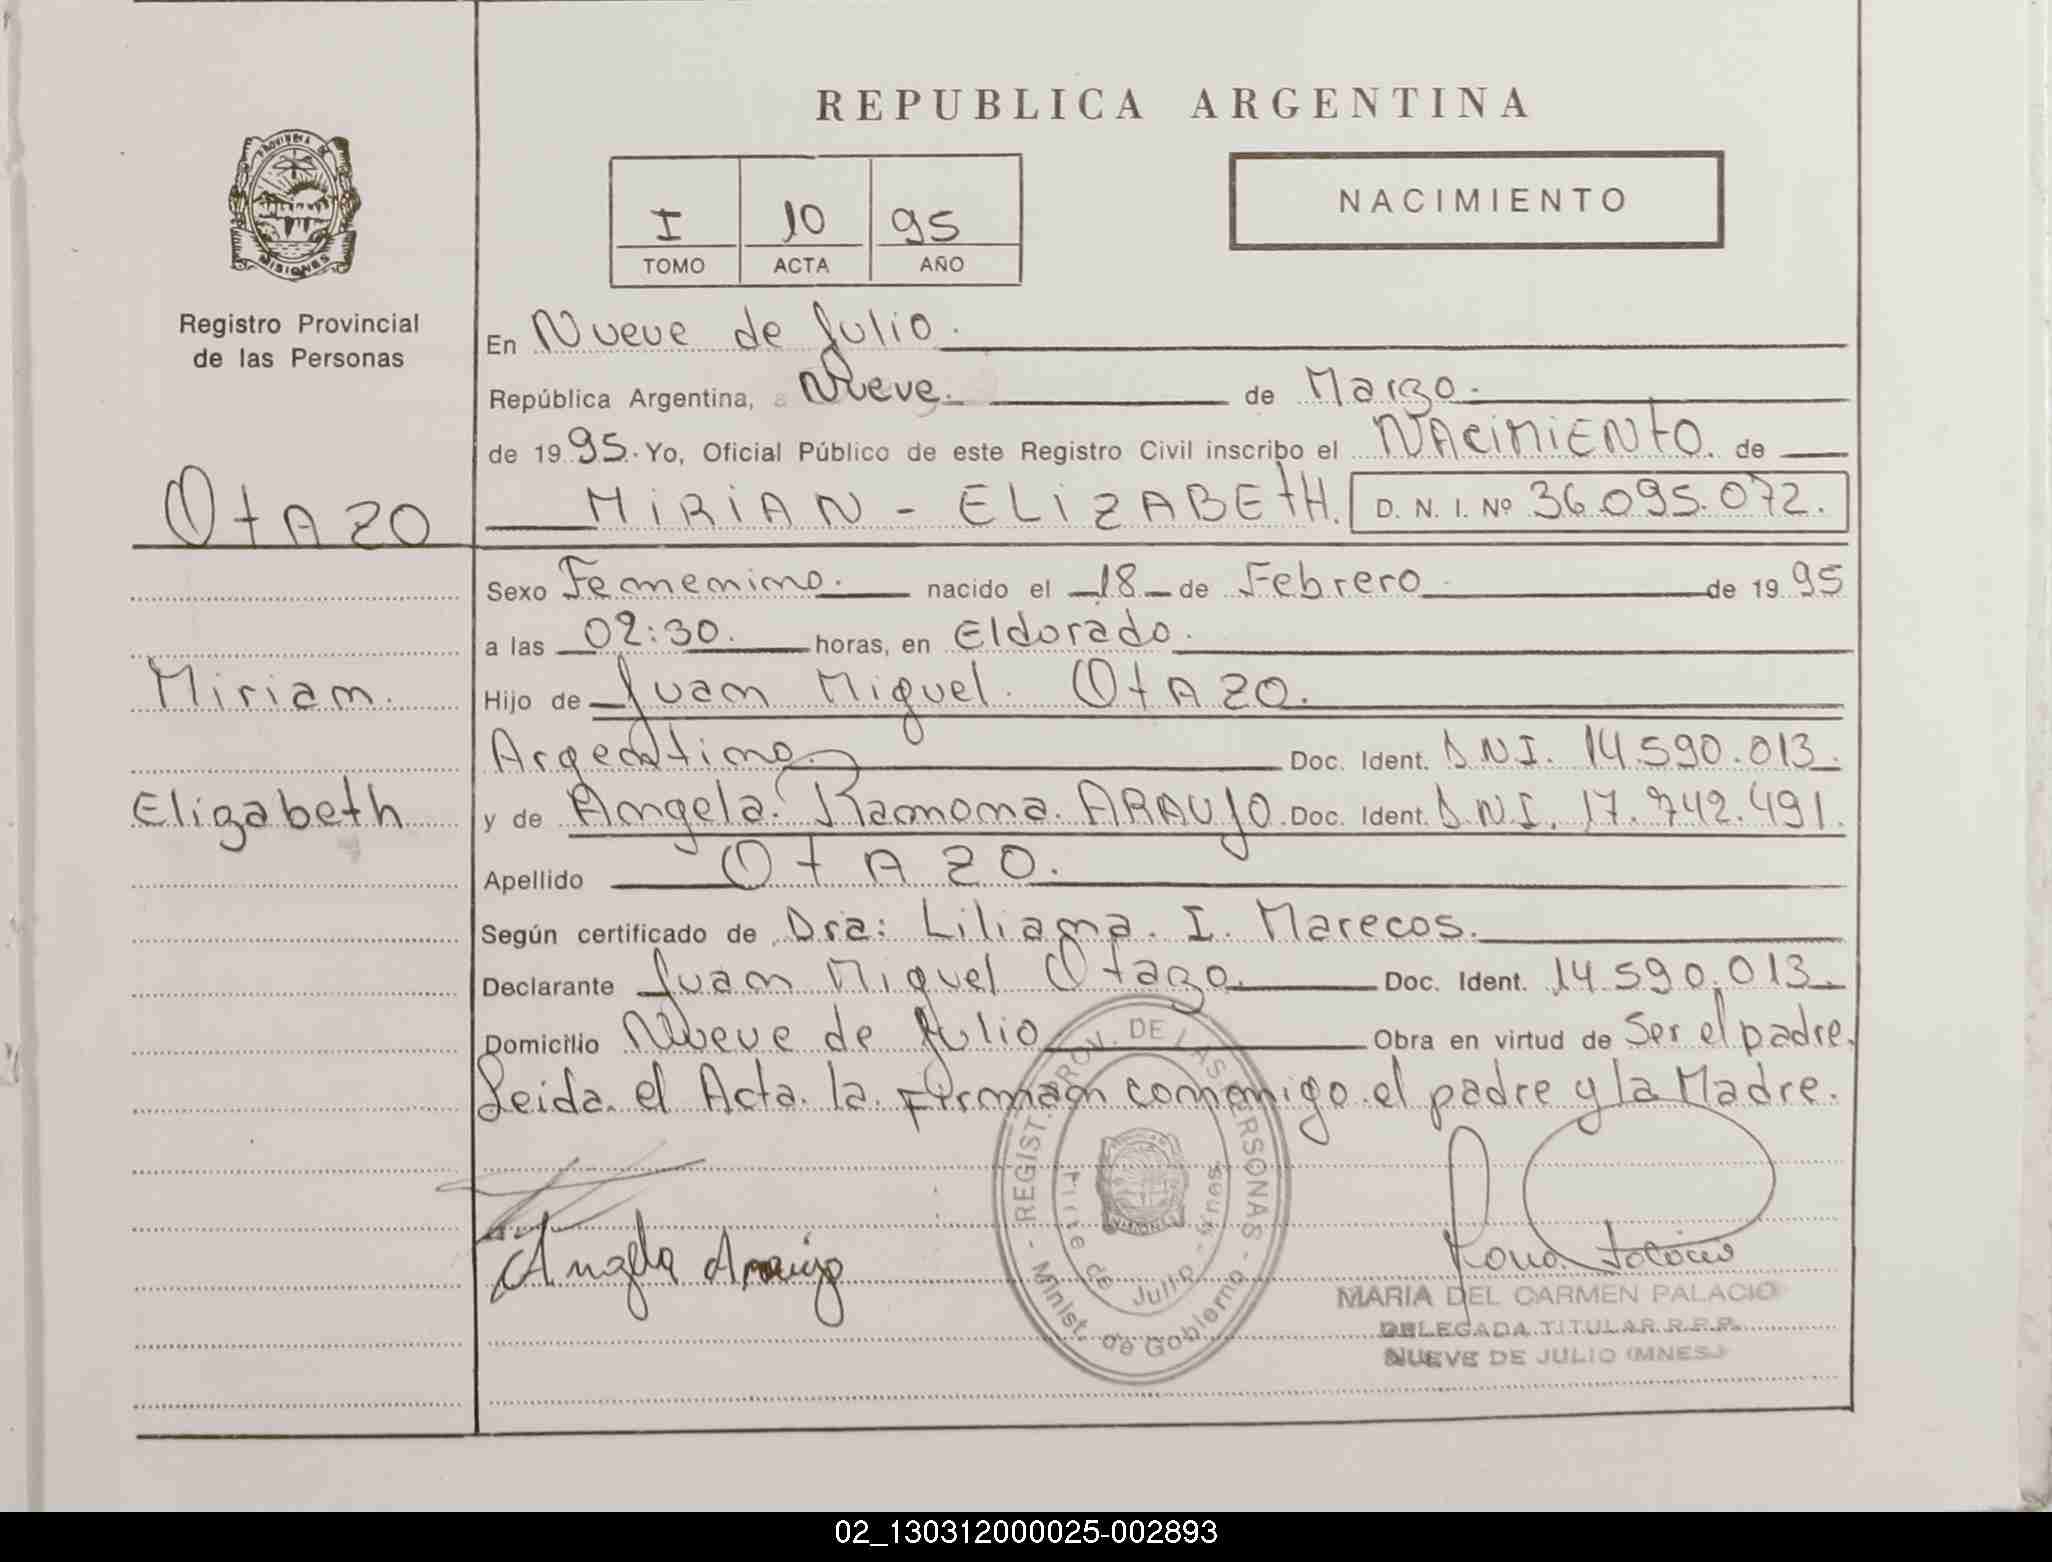 REPUBLICA ARGENTINA
PROVINCIA DE
MISIONES
Registro Provincial
de las Personas
I 10 95
TOMO ACTA AÑO
NACIMIENTO
En Nueve de Julio.
República Argentina, a Nueve. de Marzo.
de 1995. Yo, Oficial Público de este Registro Civil inscribo el NACIMIENTO. de
OtAZO
MIRIAN - ELIZABEtH. D. N. I. Nº 36.095.072.
Sexo Femenino. nacido el 18 de Febrero de 1995
a las 02:30. horas, en Eldorado.
Miriam.
Hijo de Juan Miguel. OtAZO.
Argentino. Doc. Ident. D.N.I. 14.590.013.
Elizabeth
y de Angela. Ramona. ARAUJO. Doc. Ident. D.N.I. 17.742.491.
Apellido OtAZO.
Según certificado de Dra: Liliana. I. Marecos.
Declarante Juan Miguel Otazo. Doc. Ident. 14.590.013.
Domicilio Nueve de Julio Obra en virtud de Ser el padre.
Leida. el Acta. la. Firman conmigo. el padre y la Madre.
- REGIST. PROV. DE LAS PERSONAS -
Minist. de Gobierno
de Julio - Mnes.
MISIONES
Angela Araujo
MARIA DEL CARMEN PALACIO
DELEGADA TITULAR R.P.P.
NUEVE DE JULIO (MNES.)
02_130312000025-002893